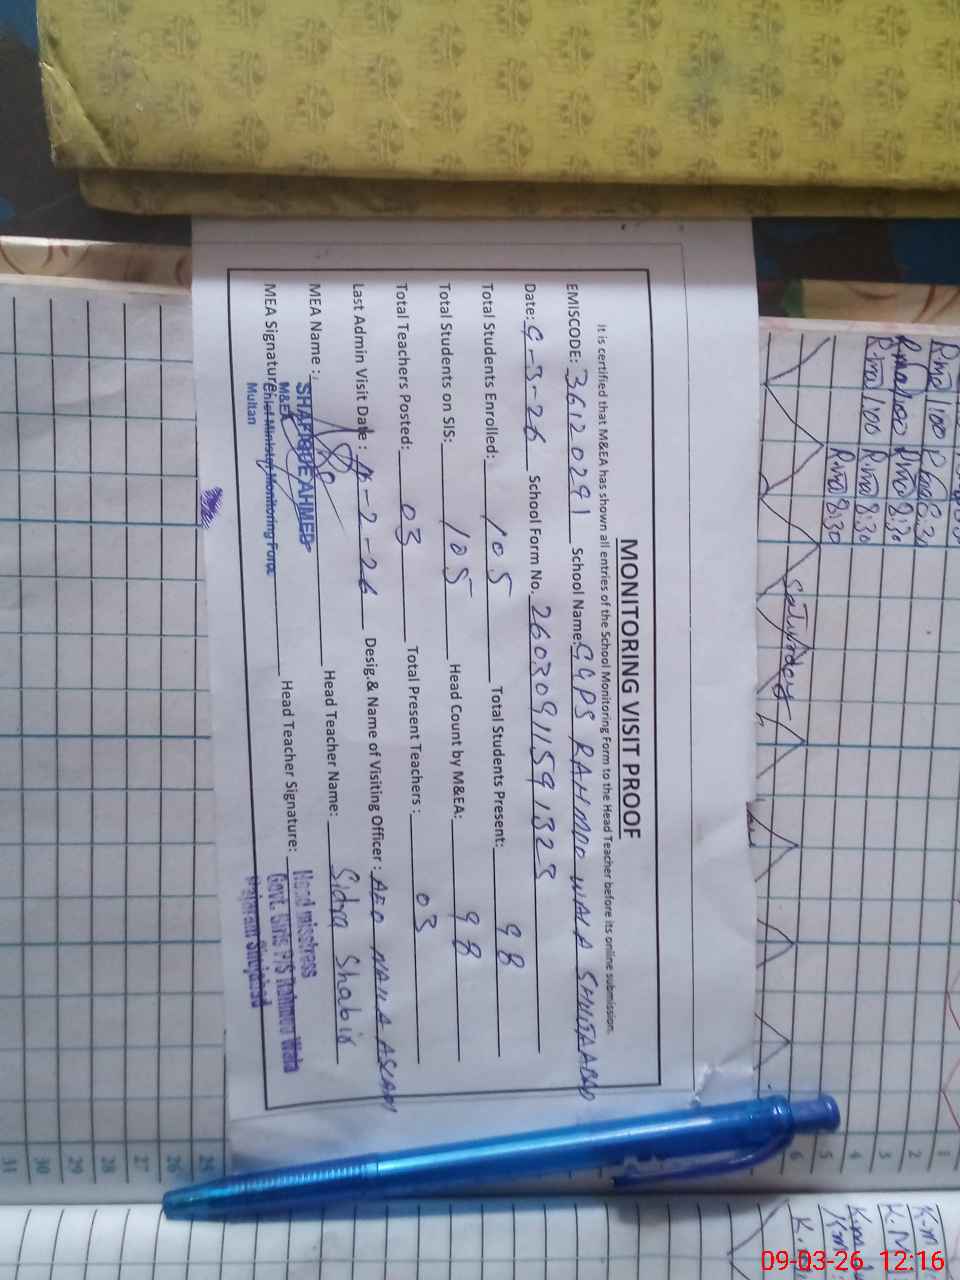 MONITORING VISIT PROOF
It is certified that M&EA has shown all entries of the School Monitoring Form to the Head Teacher before its online submission.
EMISCODE: 36120291 School Name: GGPS RAHMOO WALA SHUJAABAD
Date: 9-3-26 School Form No. 26030911591323
Total Students Enrolled: 105 Total Students Present: 98
Total Students on SIS: 105 Head Count by M&EA: 98
Total Teachers Posted: 03 Total Present Teachers : 03
Last Admin Visit Date : -2-26 Desig.& Name of Visiting Officer : AEO NAILA ASLAM
MEA Name : Head Teacher Name: Sidra Shabir
SHAFIQUE AHMED
MEA Signature: Head Teacher Signature:
M&EA
Chief Minister Monitoring Force
Multan
Head mistress
Govt. Girls P/S Rahmoo Wala
Shujabad
Saturday
R.ma 8:30
R.ma 8:30
1
2
3
4
5
6
25
26
27
28
29
30
31
K.m
09-03-26 12:16